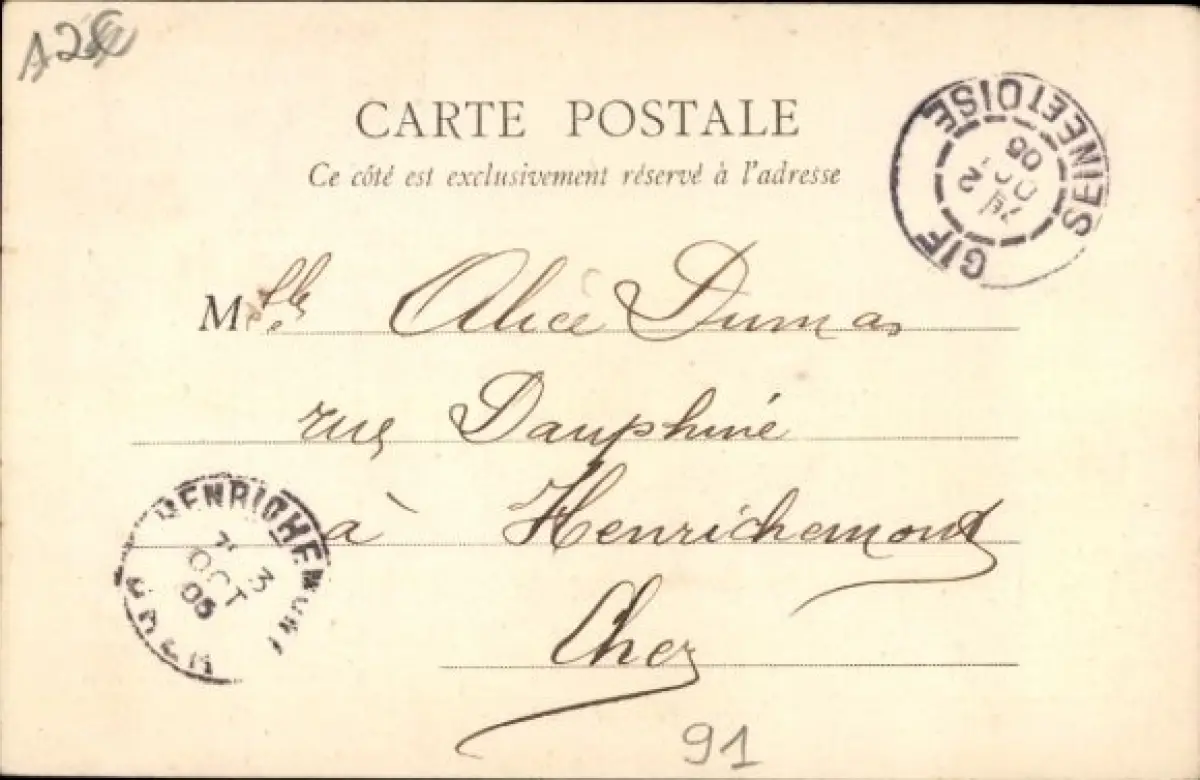 12€
CARTE POSTALE
Ce côté est exclusivement réservé à l'adresse
GIF SEINE ET OISE
2 OCT 05
Mlle Alice Dumas
rue Dauphiné
à Henrichemont
Cher
HENRICHEMONT
CHER
3 OCT 05
91